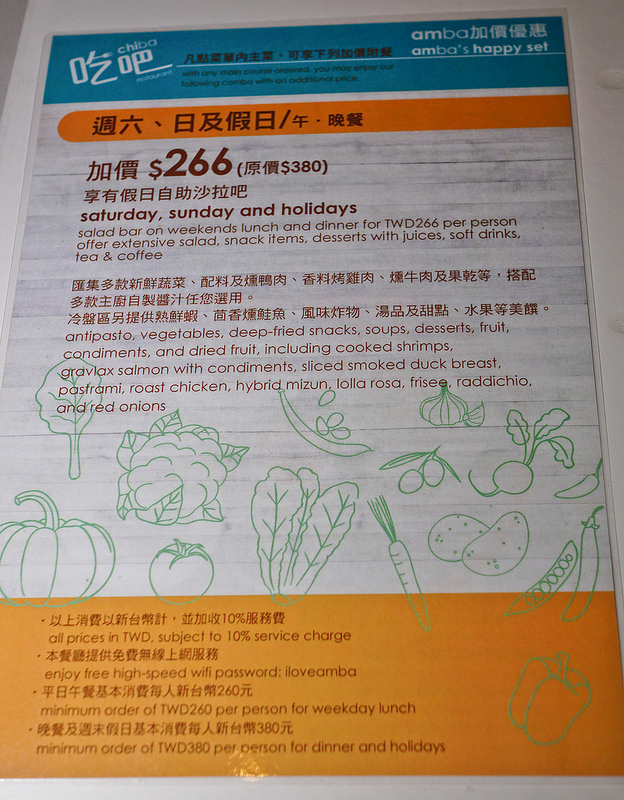 chiba
吃吧
restaurant
amba加價優惠
amba's happy set
凡點菜單內主菜，可享下列加價附餐
with any main course ordered, you may enjoy our
following combo with an additional price.
週六、日及假日/午．晚餐
加價 $266 (原價$380)
享有假日自助沙拉吧
saturday, sunday and holidays
salad bar on weekends lunch and dinner for TWD266 per person
offer extensive salad, snack items, desserts with juices, soft drinks,
tea & coffee
匯集多款新鮮蔬菜、配料及燻鴨肉、香料烤雞肉、燻牛肉及果乾等，搭配
多款主廚自製醬汁任您選用。
冷盤區另提供熟鮮蝦、茴香燻鮭魚、風味炸物、湯品及甜點、水果等美饌。
antipasto, vegetables, deep-fried snacks, soups, desserts, fruit,
condiments, and dried fruit, including cooked shrimps,
gravlax salmon with condiments, sliced smoked duck breast,
pastrami, roast chicken, hybrid mizun, lolla rosa, frisee, raddichio,
and red onions
．以上消費以新台幣計，並加收10%服務費
all prices in TWD, subject to 10% service charge
．本餐廳提供免費無線上網服務
enjoy free high-speed wifi password: iloveamba
．平日午餐基本消費每人新台幣260元
minimum order of TWD260 per person for weekday lunch
．晚餐及週末假日基本消費每人新台幣380元
minimum order of TWD380 per person for dinner and holidays